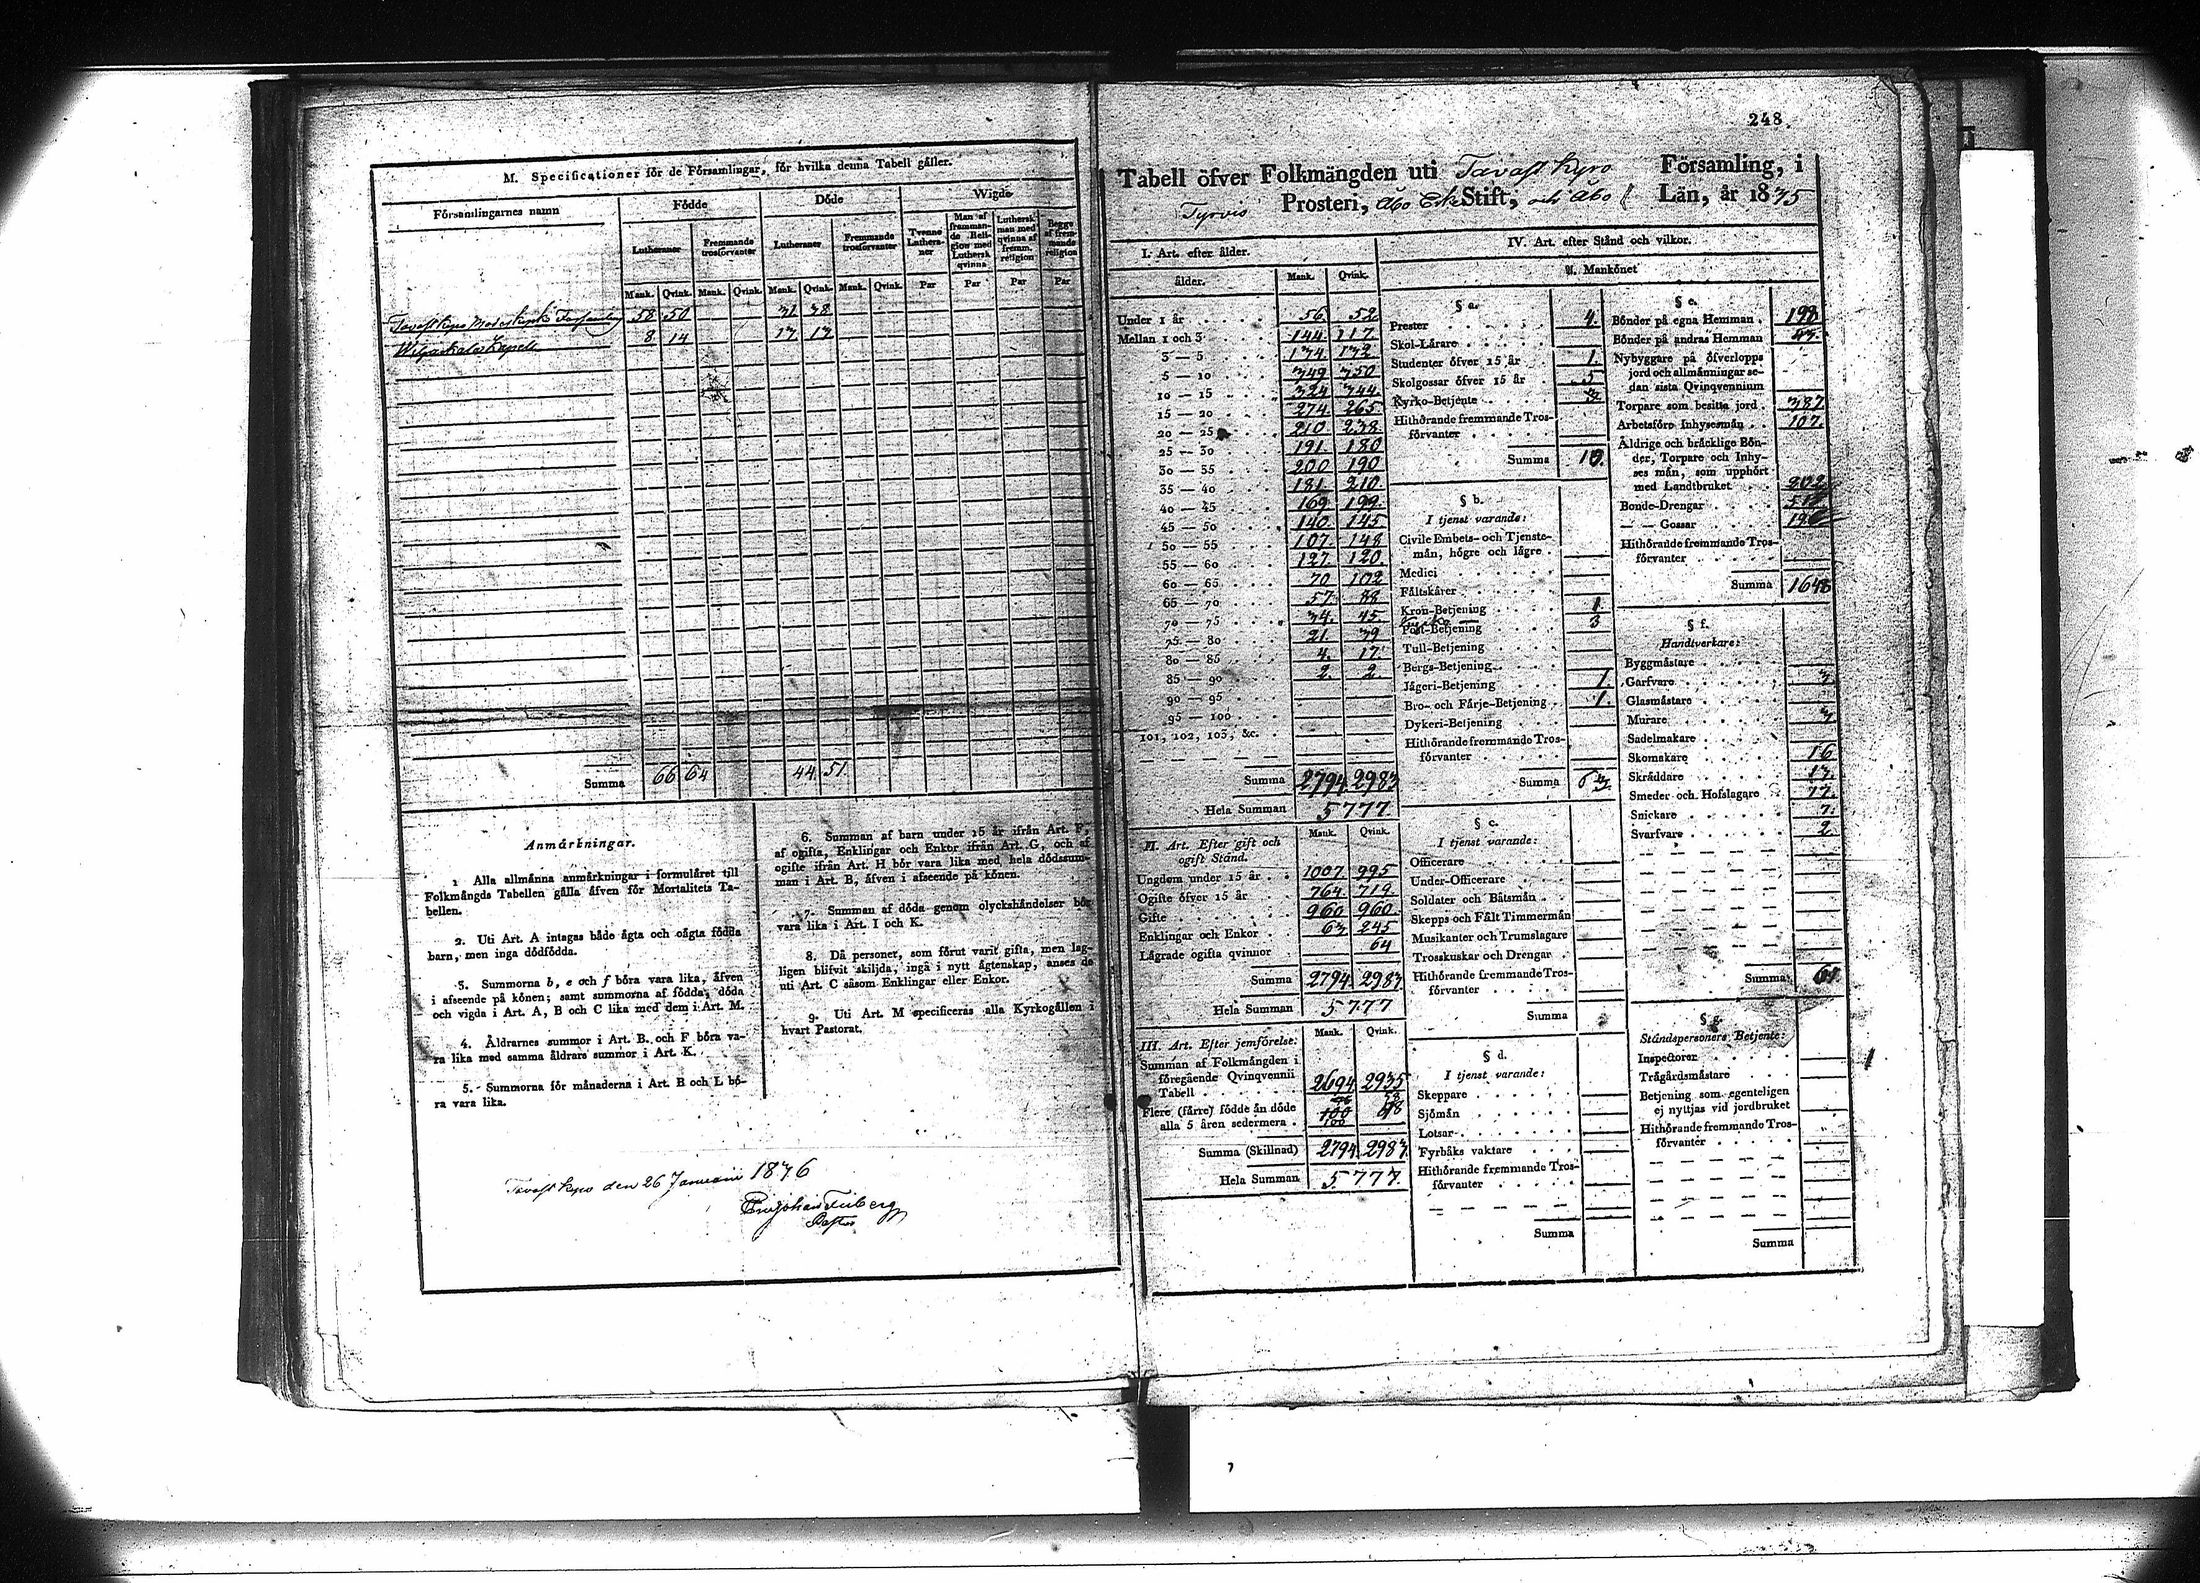 M. Specificationer för de Församlingar, för hvilka denna Tabell gäller.
Församlingarnes namn Födde Döde Wigde
Lutheraner Fremmande trosförvanter Lutheraner Fremmande trosförvanter Tvenne Lutheraner Man af fremmande Religion med Luthersk qvinna Luthersk man med qvinna af fremm. religion Begge af fremmande religion
Mank. Qvink. Mank. Qvink. Mank. Qvink. Mank. Qvink. Par Par Par Par
Tavastkyro Moderkyrko Församling 58 50 31 38
Kapell 8 14 13 13
Summa 66 64 44 51
Anmärkningar.
1 Alla allmänna anmärkningar i formuläret till
Folkmängds Tabellen gälla äfven för Mortalitets Ta-
bellen.
2. Uti Art. A intagas både ägta och oägta födda
barn, men inga dödfödda.
3. Summorna b, e och f böra vara lika, äfven
i afseende på könen; samt summorna af födda, döda
och vigda i Art. A, B och C lika med dem i Art. M.
4. Åldrarnes summor i Art. B. och F böra va-
ra lika med samma åldrars summor i Art. K.
5. Summorna för månaderna i Art. B och L bö-
ra vara lika.
6. Summan af barn under 15 år ifrån Art. F,
af ogifta, Enklingar och Enkor ifrån Art. G, och af
ogifte ifrån Art. H bör vara lika med hela dödssum-
man i Art. B, äfven i afseende på könen.
7. Summan af döda genom olyckshändelser bör
vara lika i Art. I och K.
8. Då personer, som förut varit gifta, men lag-
ligen blifvit skiljda, ingå i nytt ägtenskap, anses de
uti Art. C såsom Enklingar eller Enkor.
9. Uti Art. M specificeras alla Kyrkogällen i
hvart Pastorat.
Tavastkyro den 26 Januarii 1836
Pastor
248.
Tabell öfver Folkmängden uti Tavastkyro Församling, i
Tyrvis Prosteri, Åbo Erk Stift, och Åbo Län, år 1835
I. Art. efter ålder.
ålder. Mank. Qvink.
Under 1 år 56. 52
Mellan 1 och 3 144 117.
3 — 5 134 132
5 — 10 349 350
10 — 15 324 344
15 — 20 274 265
20 — 25 210 238
25 — 30 191 180
30 — 35 200 190
35 — 40 181 210
40 — 45 169 199.
45 — 50 140 145
50 — 55 107 148
55 — 60 127 120.
60 — 65 70 102
65 — 70 57 88
70 — 75 34. 45
75 — 80 21. 39
80 — 85 4. 17
85 — 90 2. 2.
90 — 95
95 — 100
101, 102, 103, &c.
Summa 2794 2983
Hela Summan 5777.
II. Art. Efter gift och ogift Stånd. Mank. Qvink.
Ungdom under 15 år 1007. 995
Ogifte öfver 15 år 764. 719.
Gifte 960 960
Enklingar och Enkor 63 245
Lägrade ogifta qvinnor 64
Summa 2794. 2983.
Hela Summan 5777
III. Art. Efter jemförelse. Mank. Qvink.
Summan af Folkmängden i
föregående Qvinqvennii
Tabell 2694 2935
Flere (färre) födde än döde
alla 5 åren sedermera 100 48
Summa (Skillnad) 2794 2983.
Hela Summan 5777.
IV. Art. efter Stånd och vilkor.
Mankönet
§ a.
Prester 4.
Skol-Lärare
Studenter öfver 15 år 1.
Skolgossar öfver 15 år 5
Kyrko-Betjente
Hithörande fremmande Tros-
förvanter
Summa
§ b.
I tjenst varande:
Civile Embets- och Tjenste-
män, högre och lägre
Medici
Fältskärer
Kron-Betjening 1.
Post-Betjening 3
Tull-Betjening
Bergs-Betjening
Jägeri-Betjening 1.
Bro- och Färje-Betjening 1.
Dykeri-Betjening
Hithörande fremmande Tros-
förvanter
Summa 6
§ c.
I tjenst varande:
Officerare
Under-Officerare
Soldater och Båtsmän
Skepps och Fält Timmermän
Musikanter och Trumslagare
Trosskuskar och Drengar
Hithörande fremmande Tros-
förvanter
Summa
§ d.
I tjenst varande:
Skeppare
Sjömän
Lotsar
Fyrbåks vaktare
Hithörande fremmande Tros-
förvanter
Summa
§ e.
Bönder på egna Hemman 198.
Bönder på andras Hemman
Nybyggare på öfverlopps
jord och allmänningar se-
dan sista Qvinqvennium
Torpare som besitta jord 387.
Arbetsföre Inhysesmän 107.
Äldrige och bräcklige Bön-
der, Torpare och Inhy-
ses män, som upphört
med Landtbruket
Bonde-Drengar
— — Gossar
Hithörande fremmande Tros-
förvanter
Summa 1648
§ f.
Handtverkare:
Byggmästare
Garfvare 3
Glasmästare
Murare 3
Sadelmakare
Skomakare 16
Skräddare 13.
Smeder och Hofslagare 17.
Snickare 7.
Svarfvare 2
Summa 61
§ g.
Ståndspersoners Betjente:
Inspectorer
Trägårdsmästare
Betjening som egenteligen
ej nyttjas vid jordbruket
Hithörande fremmande Tros-
förvanter
Summa